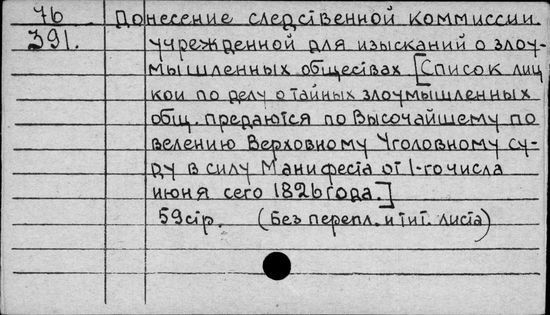 76 Донесение следственной коммиссии
391. учрежденной для изысканий о злоу-
мышленных обществах [Список лиц
кои по делу о тайных злоумышленных
общ. предаются по Высочайшему по
велению Верховному Уголовному су-
ду в силу Манифеста от 1-го числа
июня сего 1826 года.]
59 стр. (Без перепл. и тит. листа)